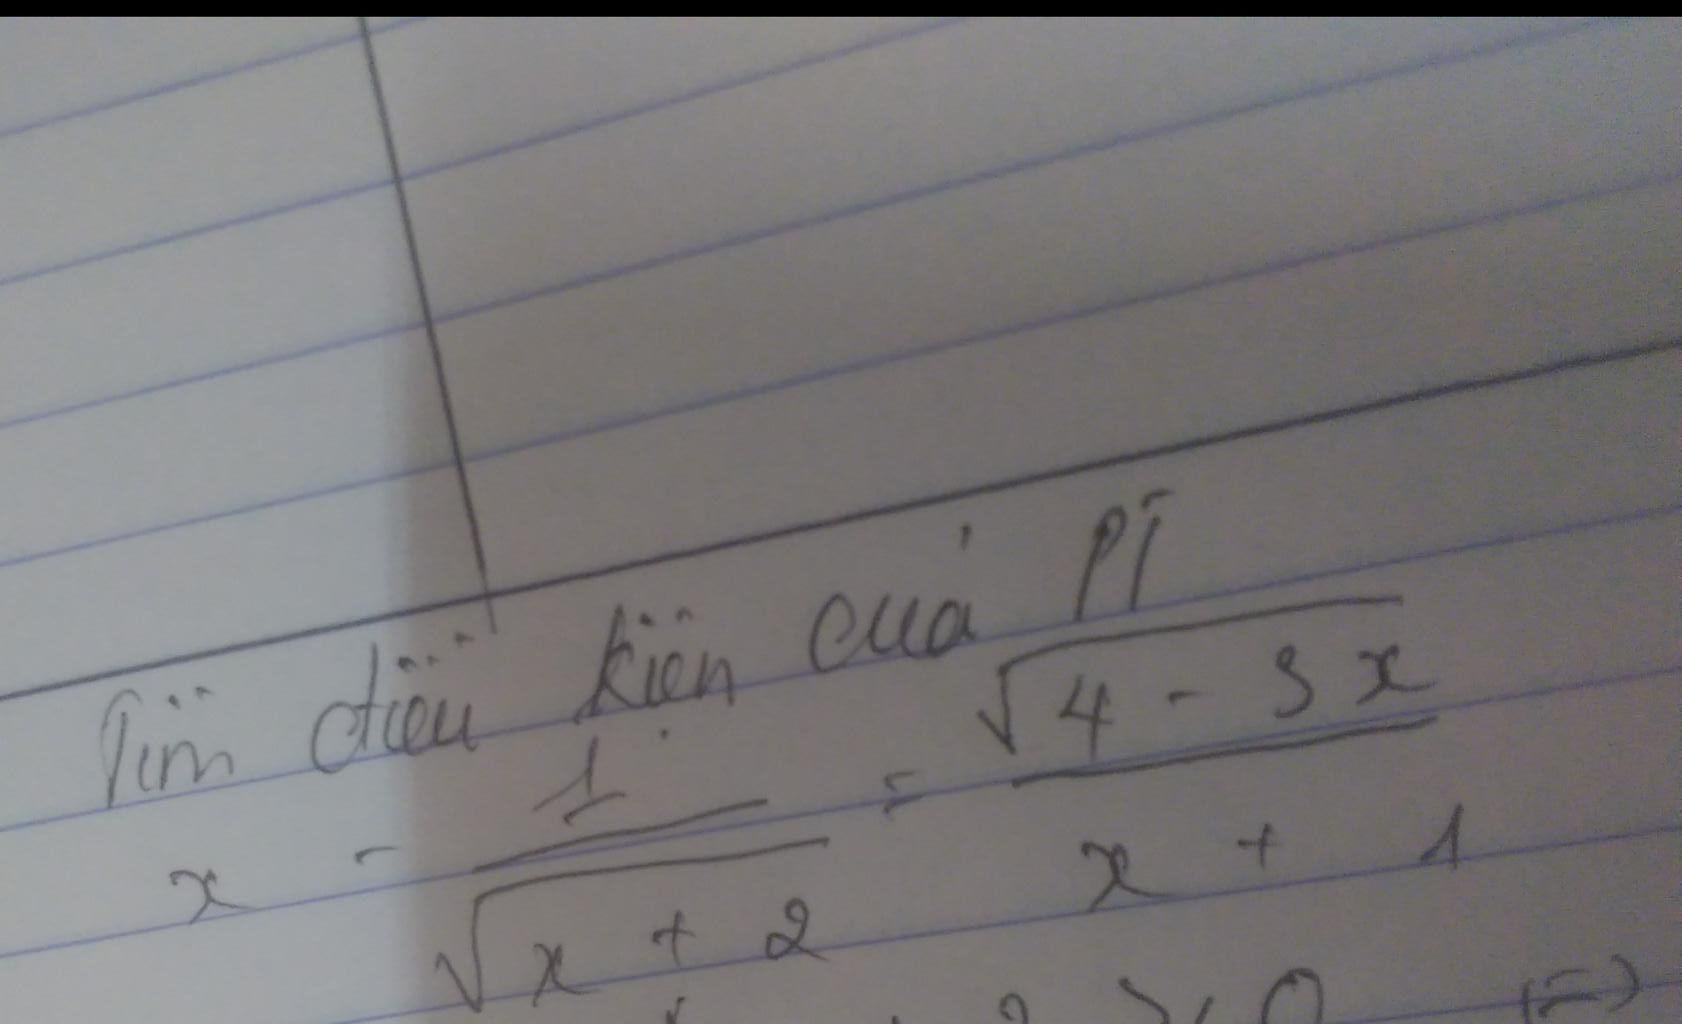 Tìm điều kiện của PT
x - 1/√(x + 2) = √(4 - 3x)/(x + 1)
2 > 0 (=)